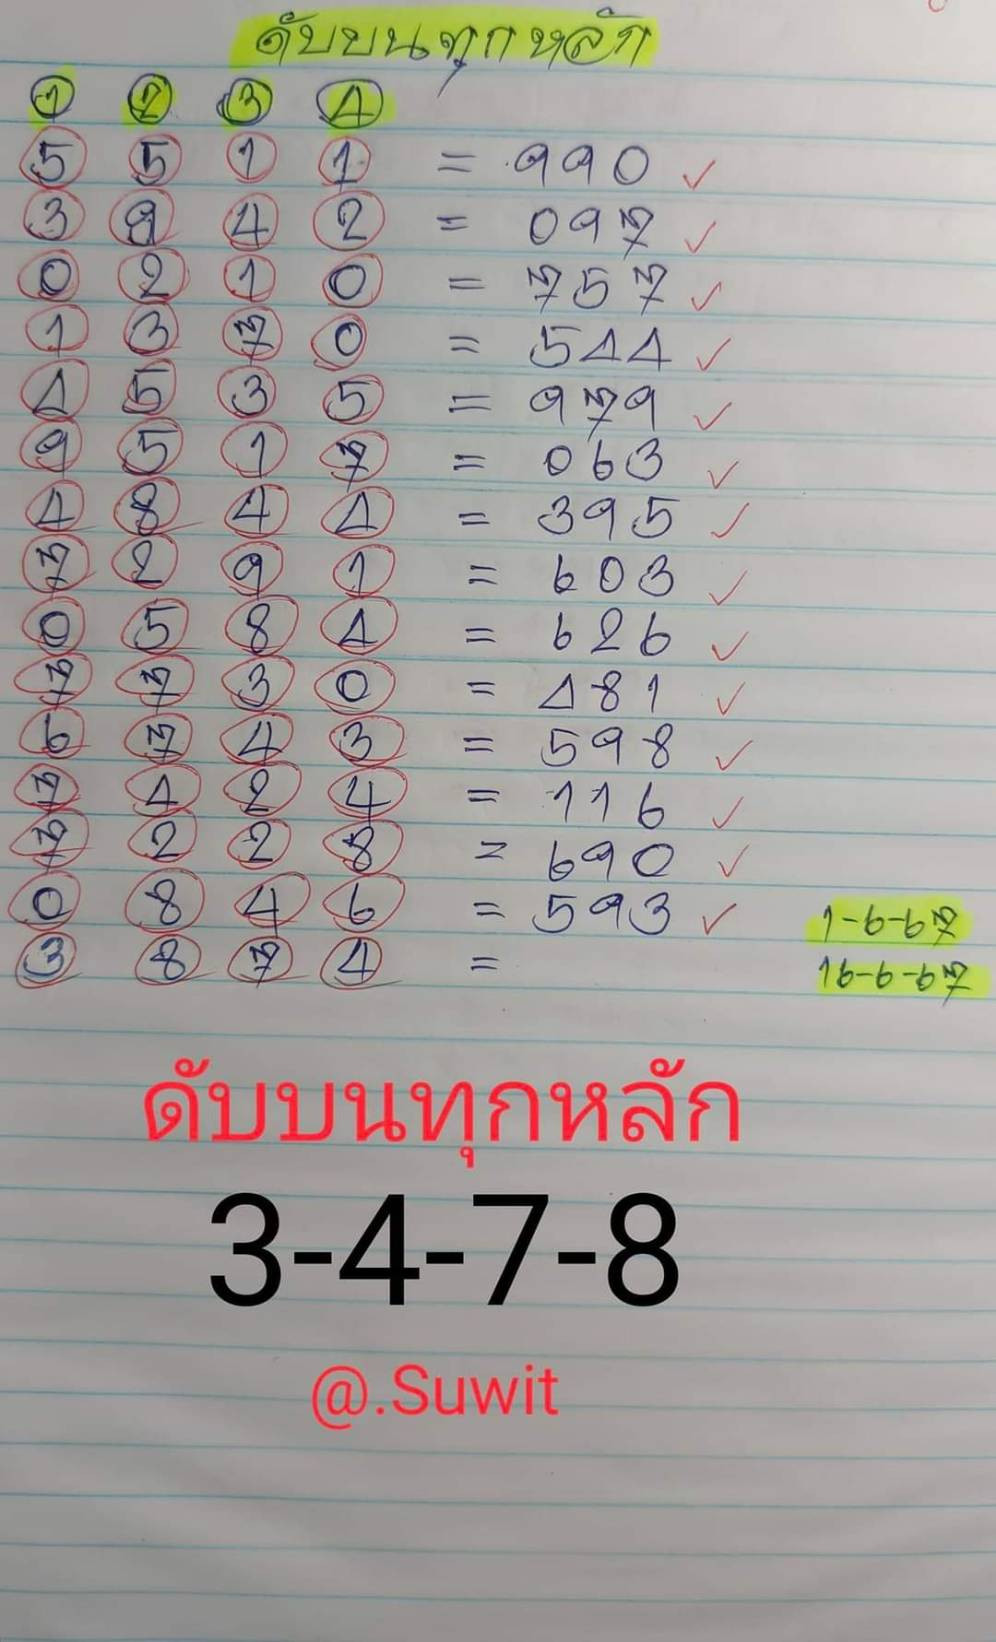 ดับบนทุกหลัก
1 2 3 4
5 5 1 1 = 990 ✓
3 9 4 2 = 097 ✓
0 2 1 0 = 757 ✓
1 3 7 0 = 544 ✓
4 5 3 5 = 979 ✓
9 5 1 7 = 063 ✓
4 8 4 4 = 395 ✓
7 2 9 1 = 603 ✓
0 5 8 4 = 626 ✓
7 7 3 0 = 481 ✓
6 7 4 3 = 598 ✓
7 4 2 4 = 116 ✓
7 2 2 8 = 690 ✓
0 8 4 6 = 593 ✓ 1-6-67
3 8 7 4 = 16-6-67
ดับบนทุกหลัก
3-4-7-8
@.Suwit